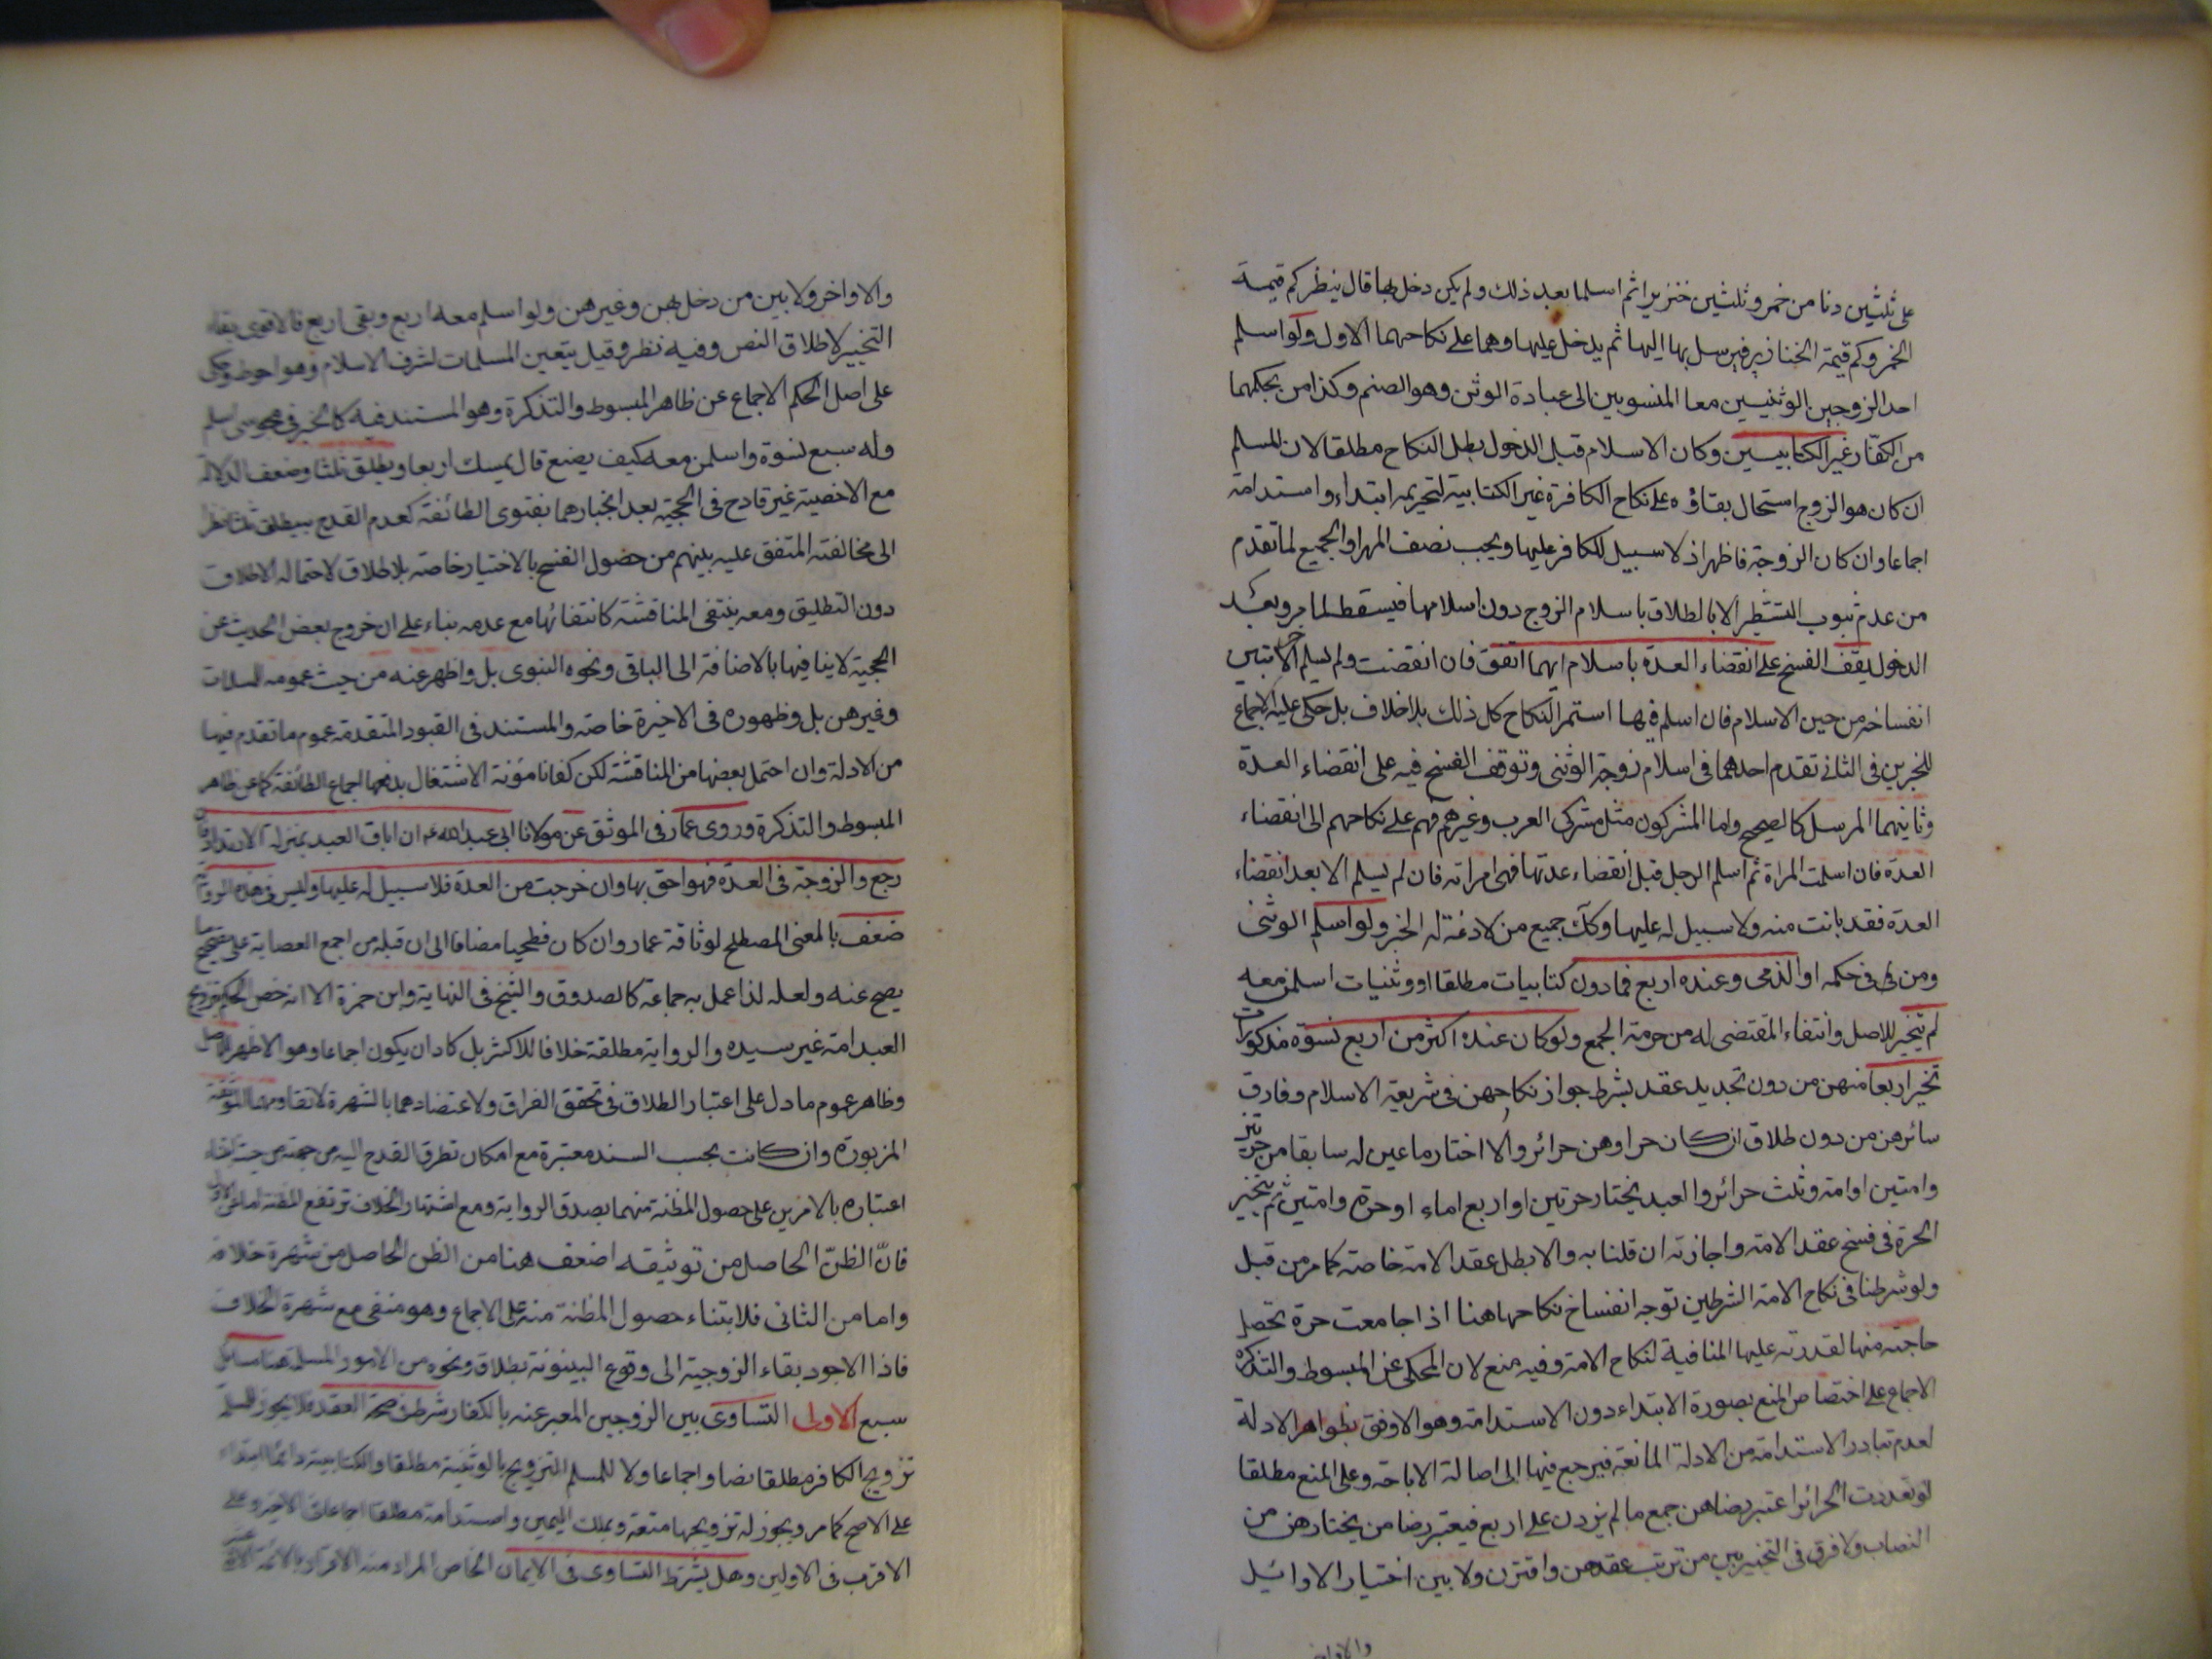 على ثلثين دنا من خمر وثلثين خنزيرا ثم اسلما بعد ذلك ولم يكن دخل بها قال ينظر كم قيمة
الخمر وكم قيمة الخنازير فيرسل بها اليها ثم يدخل عليها وهما على نكاحهما الاول ولو اسلم
احد الزوجين الوثنيين معا المنسوبين الى عبادة الوثن وهو الصنم وكذا من بحكمهما
من الكفار غير الكتابيين وكان الاسلام قبل الدخول بطل النكاح مطلقا لان المسلم
ان كان هو الزوج استحال بقاؤه على نكاح الكافرة غير الكتابية لتحريمه ابتداء واستدامة
اجماعا وان كان الزوجة فاظهر اذ لا سبيل للكافر عليها ويجب نصف المهر او الجميع لما تقدم
من عدم ثبوت التشطير الا بالطلاق باسلام الزوج دون اسلامها فيسقط لما مر وبعد
الدخول يقف الفسخ على انقضاء العدة باسلام ايهما اتفق فان انقضت ولم يسلم الاخر تبين
انفساخه من حين الاسلام فان اسلم فيها استمر النكاح كل ذلك بلا خلاف بل حكى عليه الاجماع
للخبرين في الثاني تقدم احدهما في اسلام زوجة الوثني وتوقف الفسخ فيه على انقضاء العدة
وثانيهما المرسل كالصحيح واما المشركون مثل مشركي العرب وغيرهم فهم على نكاحهم الى انقضاء
العدة فان اسلمت المراة ثم اسلم الرجل قبل انقضاء عدتها فهي امراته فان لم يسلم الا بعد انقضاء
العدة فقد بانت منه ولا سبيل له عليها وكك جميع من لا ذمة له الخبر ولو اسلم الوثنى
ومن في حكمه او الذمى وعنده اربع فما دون كتابيات مطلقا او وثنيات اسلمن معه
لم يتخير للاصل وانتفاء المقتضى له من حرمة الجمع ولو كان عنده اكثر من اربع نسوة مذكورات
تخير اربعا منهن من دون تجديد عقد بشرط جواز نكاحهن في شريعة الاسلام وفارق
سائرهن من دون طلاق ان كان حرا وهن حرائر والا اختار ما عين له سابقا من حرتين
وامتين او امة وثلث حرائر والعبد يختار حرتين او اربع اماء او حرة وامتين ثم تتخير
الحرة في فسخ عقد الامة واجازته ان قلنا به والا بطل عقد الامة خاصة كما مر من قبل
ولو شرطنا في نكاح الامة الشرطين توجه انفساخ نكاحها هنا اذا جامعت حرة تحصل
حاجته منها لقدرته عليها المنافية لنكاح الامة وفيه منع لان المحكى عن المبسوط والتذكرة
الاجماع على اختصاص المنع بصورة الابتداء دون الاستدامة وهو الاوفق بظواهر الادلة
لعدم تبادر الاستدامة من الادلة المانعة فيرجع فيها الى اصالة الاباحة وعلى المنع مطلقا
لو تعددت الحرائر اعتبر رضاهن جمع ما لم يزدن على اربع فيعتبر رضا من يختارهن من
النصاب ولا فرق في التخيير بين من ترتب عقدهن واقترن ولا بين اختيار الاوائل
والاواخر
والاواخر ولا بين من دخل بهن وغيرهن ولو اسلم معه اربع وبقى اربع فالاقوى بقاء
التخيير لاطلاق النص وفيه نظر وقيل يتعين المسلمات لشرف الاسلام وهو احوط وحكى
على اصل الحكم الاجماع عن ظاهر المبسوط والتذكرة وهو المستند فيه كالخبر في مجوسى اسلم
وله سبع نسوة واسلمن معه كيف يصنع قال يمسك اربعا ويطلق ثلثا وضعف الدلالة
مع الاخصية غير قادح في الحجية بعد انجبارهما بفتوى الطائفة كعدم القدح بيطلق ثلثا نظرا
الى مخالفته المتفق عليه بينهم من حصول الفسخ بالاختيار خاصة بلا طلاق لاحتماله الاطلاق
دون التطليق ومعه ينتفى المناقشة كانتفائها مع عدمه بناء على ان خروج بعض الحديث عن
الحجية لا ينافيها بالاضافة الى الباقى ونحوه النبوى بل واظهر عنه من حيث عمومه للمسلمات
وغيرهن بل وظهوره في الاخيرة خاصة والمستند في القيود المتقدمة عموم ما تقدم فيها
من الادلة وان احتمل بعضها من المناقشة لكن كفانا مؤنة الاشتغال بدفعها اجماع الطائفة كما عن ظاهر
المبسوط والتذكرة وروى عمار في الموثق عن مولانا ابى عبد الله ع ان اباق العبد بمنزلة الارتداد فان
رجع والزوجة في العدة فهو احق بها وان خرجت من العدة فلا سبيل له عليها وليس في هذه الرواية
ضعف بالمعنى المصطلح لوثاقة عمار وان كان فطحيا مضافا الى ان قبله من اجمع العصابة على تصحيح ما
يصح عنه ولعله لذا عمل به جماعة كالصدوق والشيخ في النهاية وابن حمزة الا انه خص الحكم بتزويج
العبد امة غير سيده والرواية مطلقة خلافا للاكثر بل كاد ان يكون اجماعا وهو الاظهر للاصل
وظاهر عموم ما دل على اعتبار الطلاق في تحقق الفراق ولاعتضادهما بالشهرة لا تقاومهما الموثقة
المزبورة وان كانت بحسب السند معتبرة مع امكان تطرق القدح اليه من جهته من حيث ابتناء
اعتباره بالامرين على حصول المظنة منهما بصدق الرواية ومع اشتهار الخلاف ترتفع المظنة اما من الاول
فان الظن الحاصل من توثيقه اضعف هنا من الظن الحاصل من شهرة خلافه
واما من الثانى فلابتناء حصول المظنة منه على الاجماع وهو منفى مع شهرة الخلاف
فاذا الاجود بقاء الزوجية الى وقوع البينونة بطلاق ونحوه من الامور المسلمة هنا مسائل
سبع الاولى التساوى بين الزوجين المعبر عنه بالكفار شرط في صحة العقد فلا يجوز للمسلمة
تزويج الكافر مطلقا نصا واجماعا ولا للمسلم التزويج بالوثنية مطلقا والكتابية دائما ابتداء
على الاصح كما مر ويجوز له تزويجها متعة وبملك اليمين واستدامة مطلقا اجماعا في الاخير وعلى
الاقرب في الاولين وهل يشترط التساوى في الايمان الخاص المراد منه الاقرار بالائمة